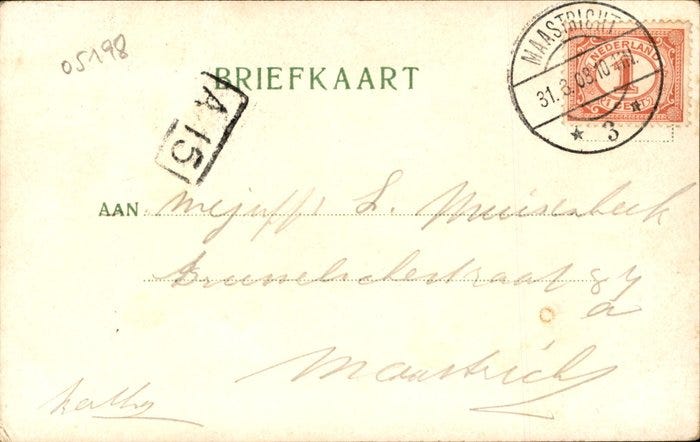 05198
BRIEFKAART
MAASTRICHT
31.8.08 10
3
NEDERLAND
1
CENT
A 15
AAN Mejuffr L. Muisenbeek
Brusselschestraat 87
a
Maastricht